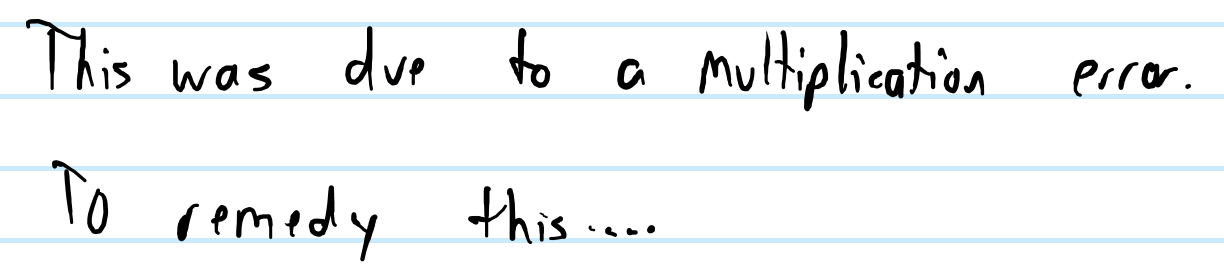 This was due to a multiplication error.
To remedy this.....